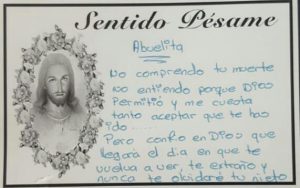 Sentido Pésame
Abuelita
No comprendo tu muerte
no entiendo porque Dios
Permitió y me cuesta
tanto aceptar que te has
ido .....
Pero confio en Dios que
llegará el dia en que te
vuelva a ver, te extraño y
nunca te olvidaré tu nieto